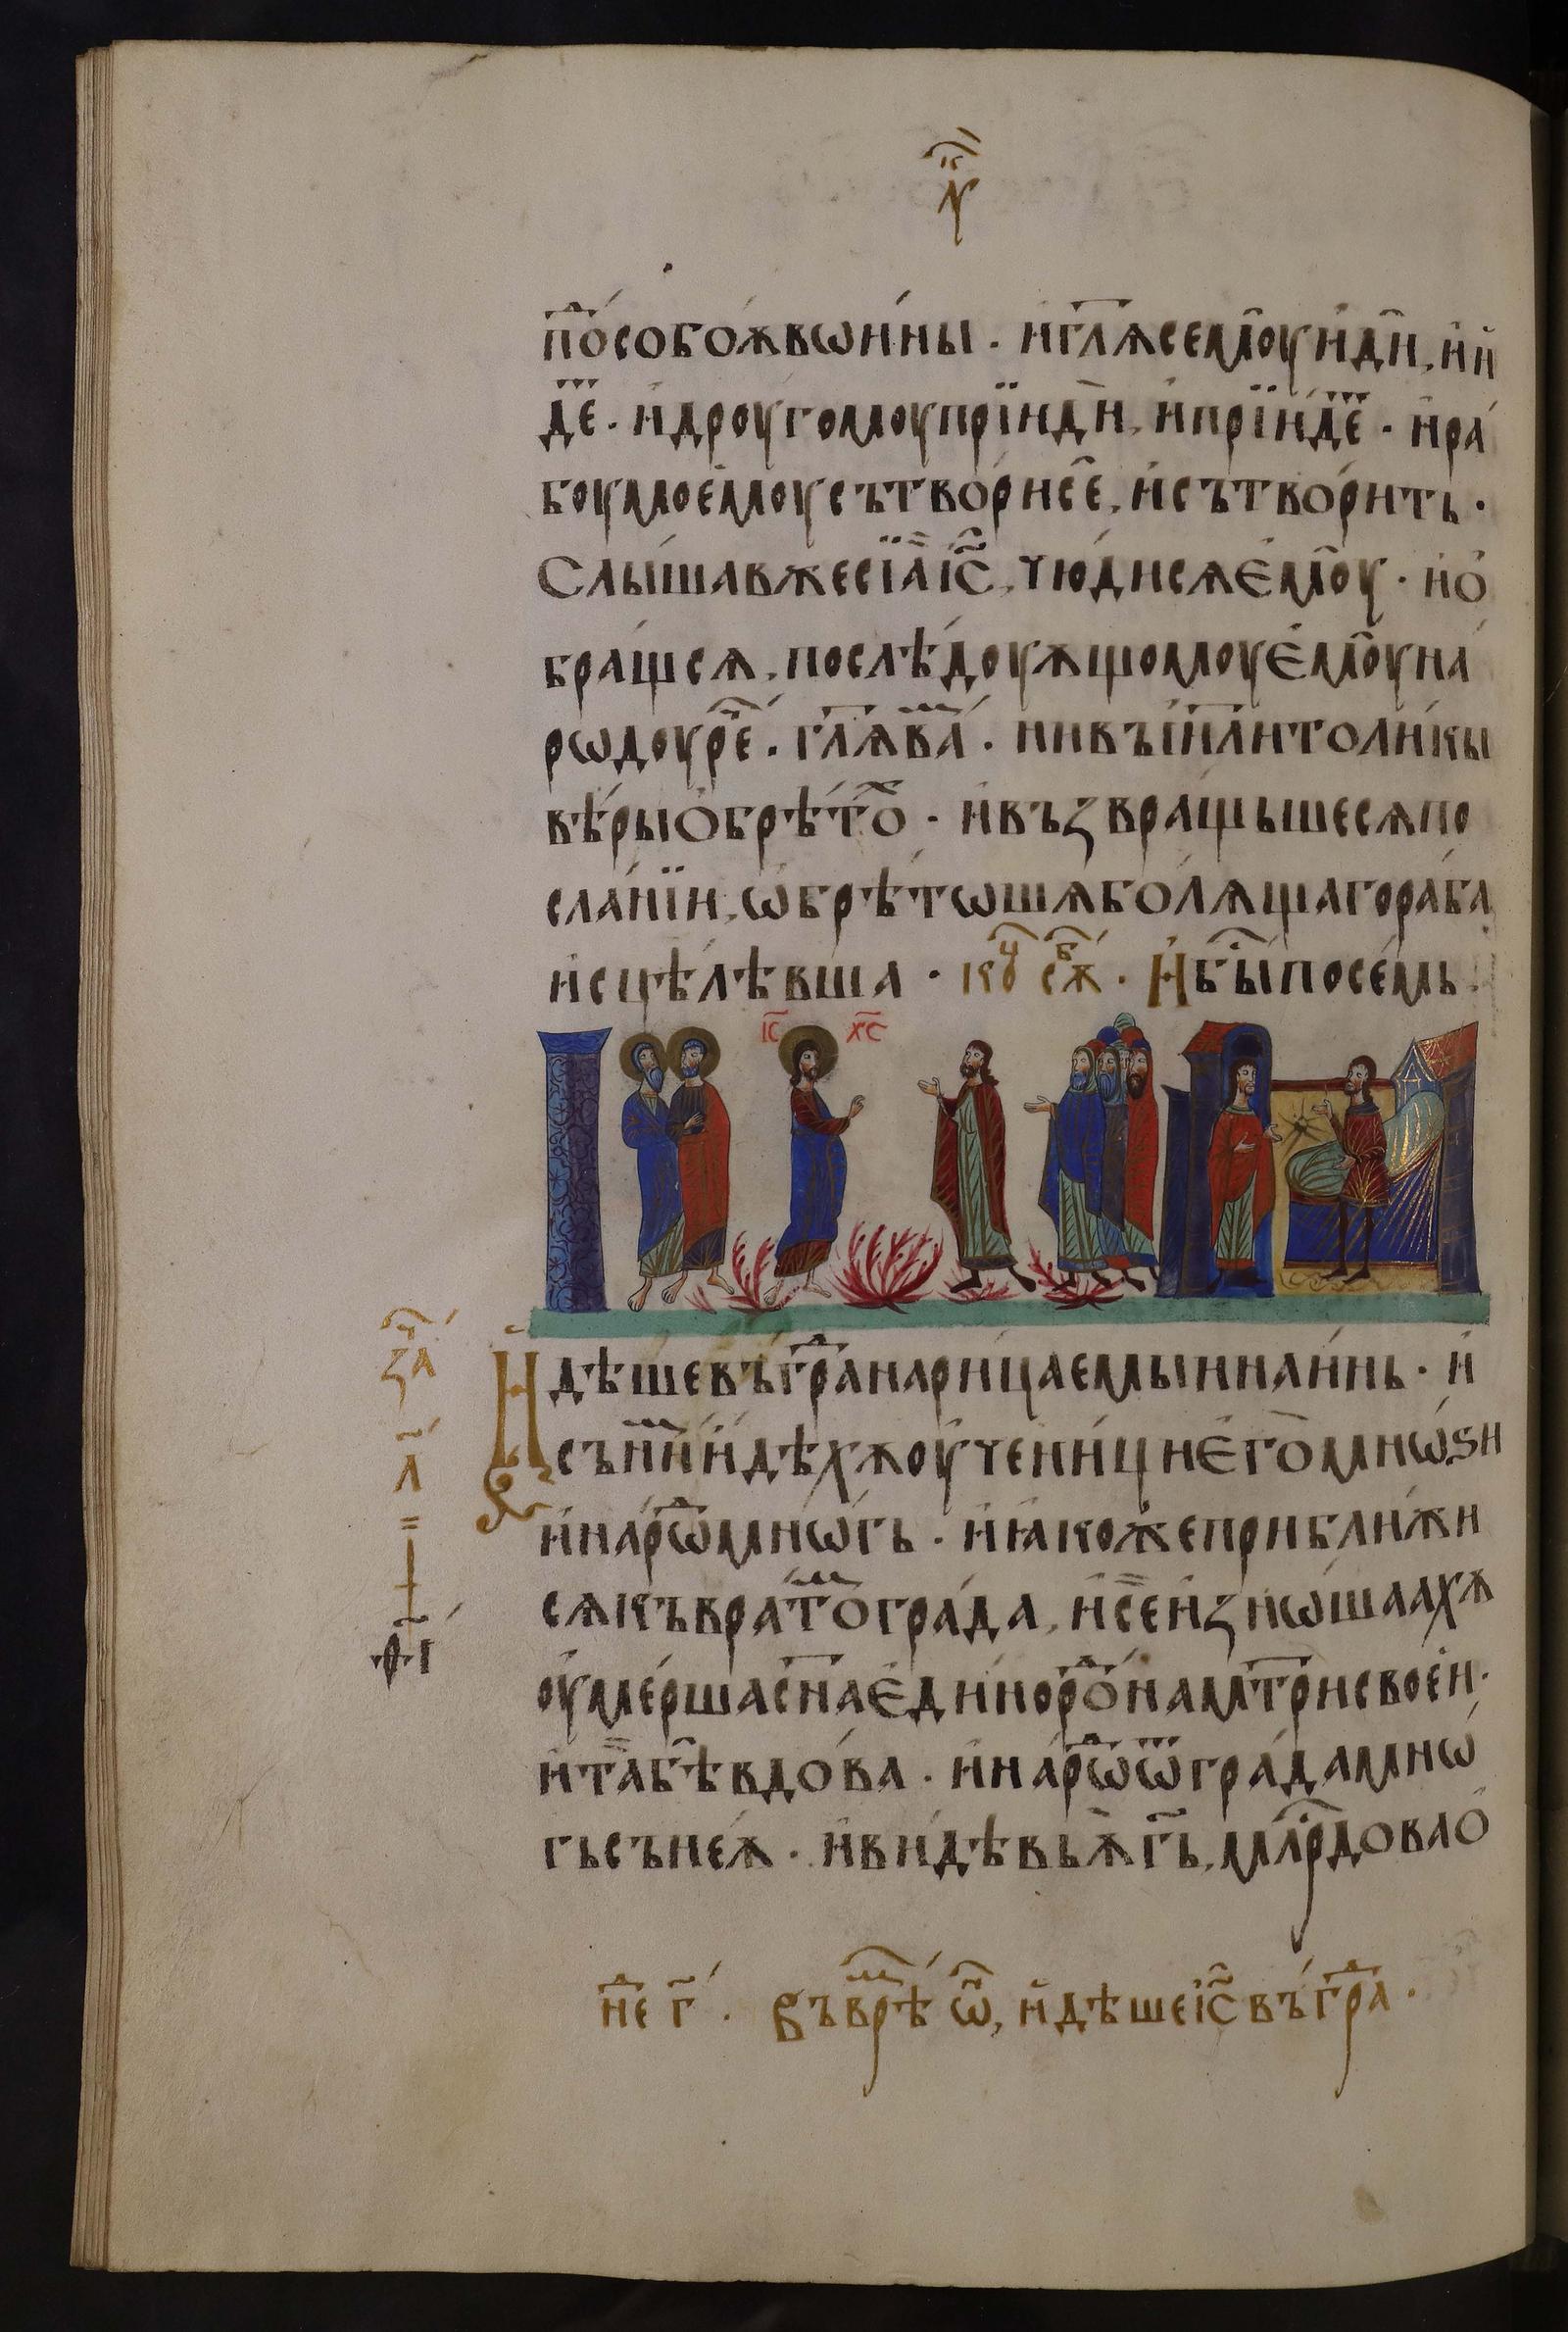 по́собоѫ вѡи́ны · и҆ гл҃ѧ семо̑у и҆ди̑, и҆ и҆
де · и҆ дроуголоу прїиди̑, и҆ прїи́де · и҆ ра́
боу моємоу сътво́ри сє̑, и҆ сътво́рить ·
Слы́шав же сїа̀ і҆с҃, чюдисѧ є҆мо̑у · и҆ о҆
бра́щсѧ, послѣ́доуѫщомоу є҆мо̑у на
рѡдоу ре҄ · гл҃ѧ ва́ · ни въ і҆и҃ли толи́кы
вѣ́ры о҆брѣ́то · и҆ възвра́щьшесѧ по
сла́нїи, ѡ҆брѣ́тѡшѧ болѧщаго ра́ба
и҆сцѣ́лѣвша · кѡ҃ц сѫб · И҆ бы̑ по се́мь
і҃с х҃с
И҆дѣ́ше въ гра̑ нари́цаемыи наи́нь · и҆
съ ни́и и҆дѣхѫ оу҆чени́ци є҆го̀ мнѡ́ѕи
и҆ наро̑ мнѡ́гь · и҆ ꙗ҆коже прибли́жи
сѧ къ врато̑ гра́да, и҆ се̏ и҆зно́шаахѫ
оу҆ме́рша сн҃а є҆диноро̑на мт҃ри своє́и ·
и҆ та̏ бѣ̑ вдо́ва · и҆ наро̑ ѿ гра́да мнѡ́
гь съ неѫ · и҆ ви́дѣвь ѫ҆̀ г҃ь, млр҃дова о҆
за҃ч
л҃
не г҃ · Въ врѣ̑ ѡ҆́н, и҆дѣше і҆с҃ въ гра̑ ·